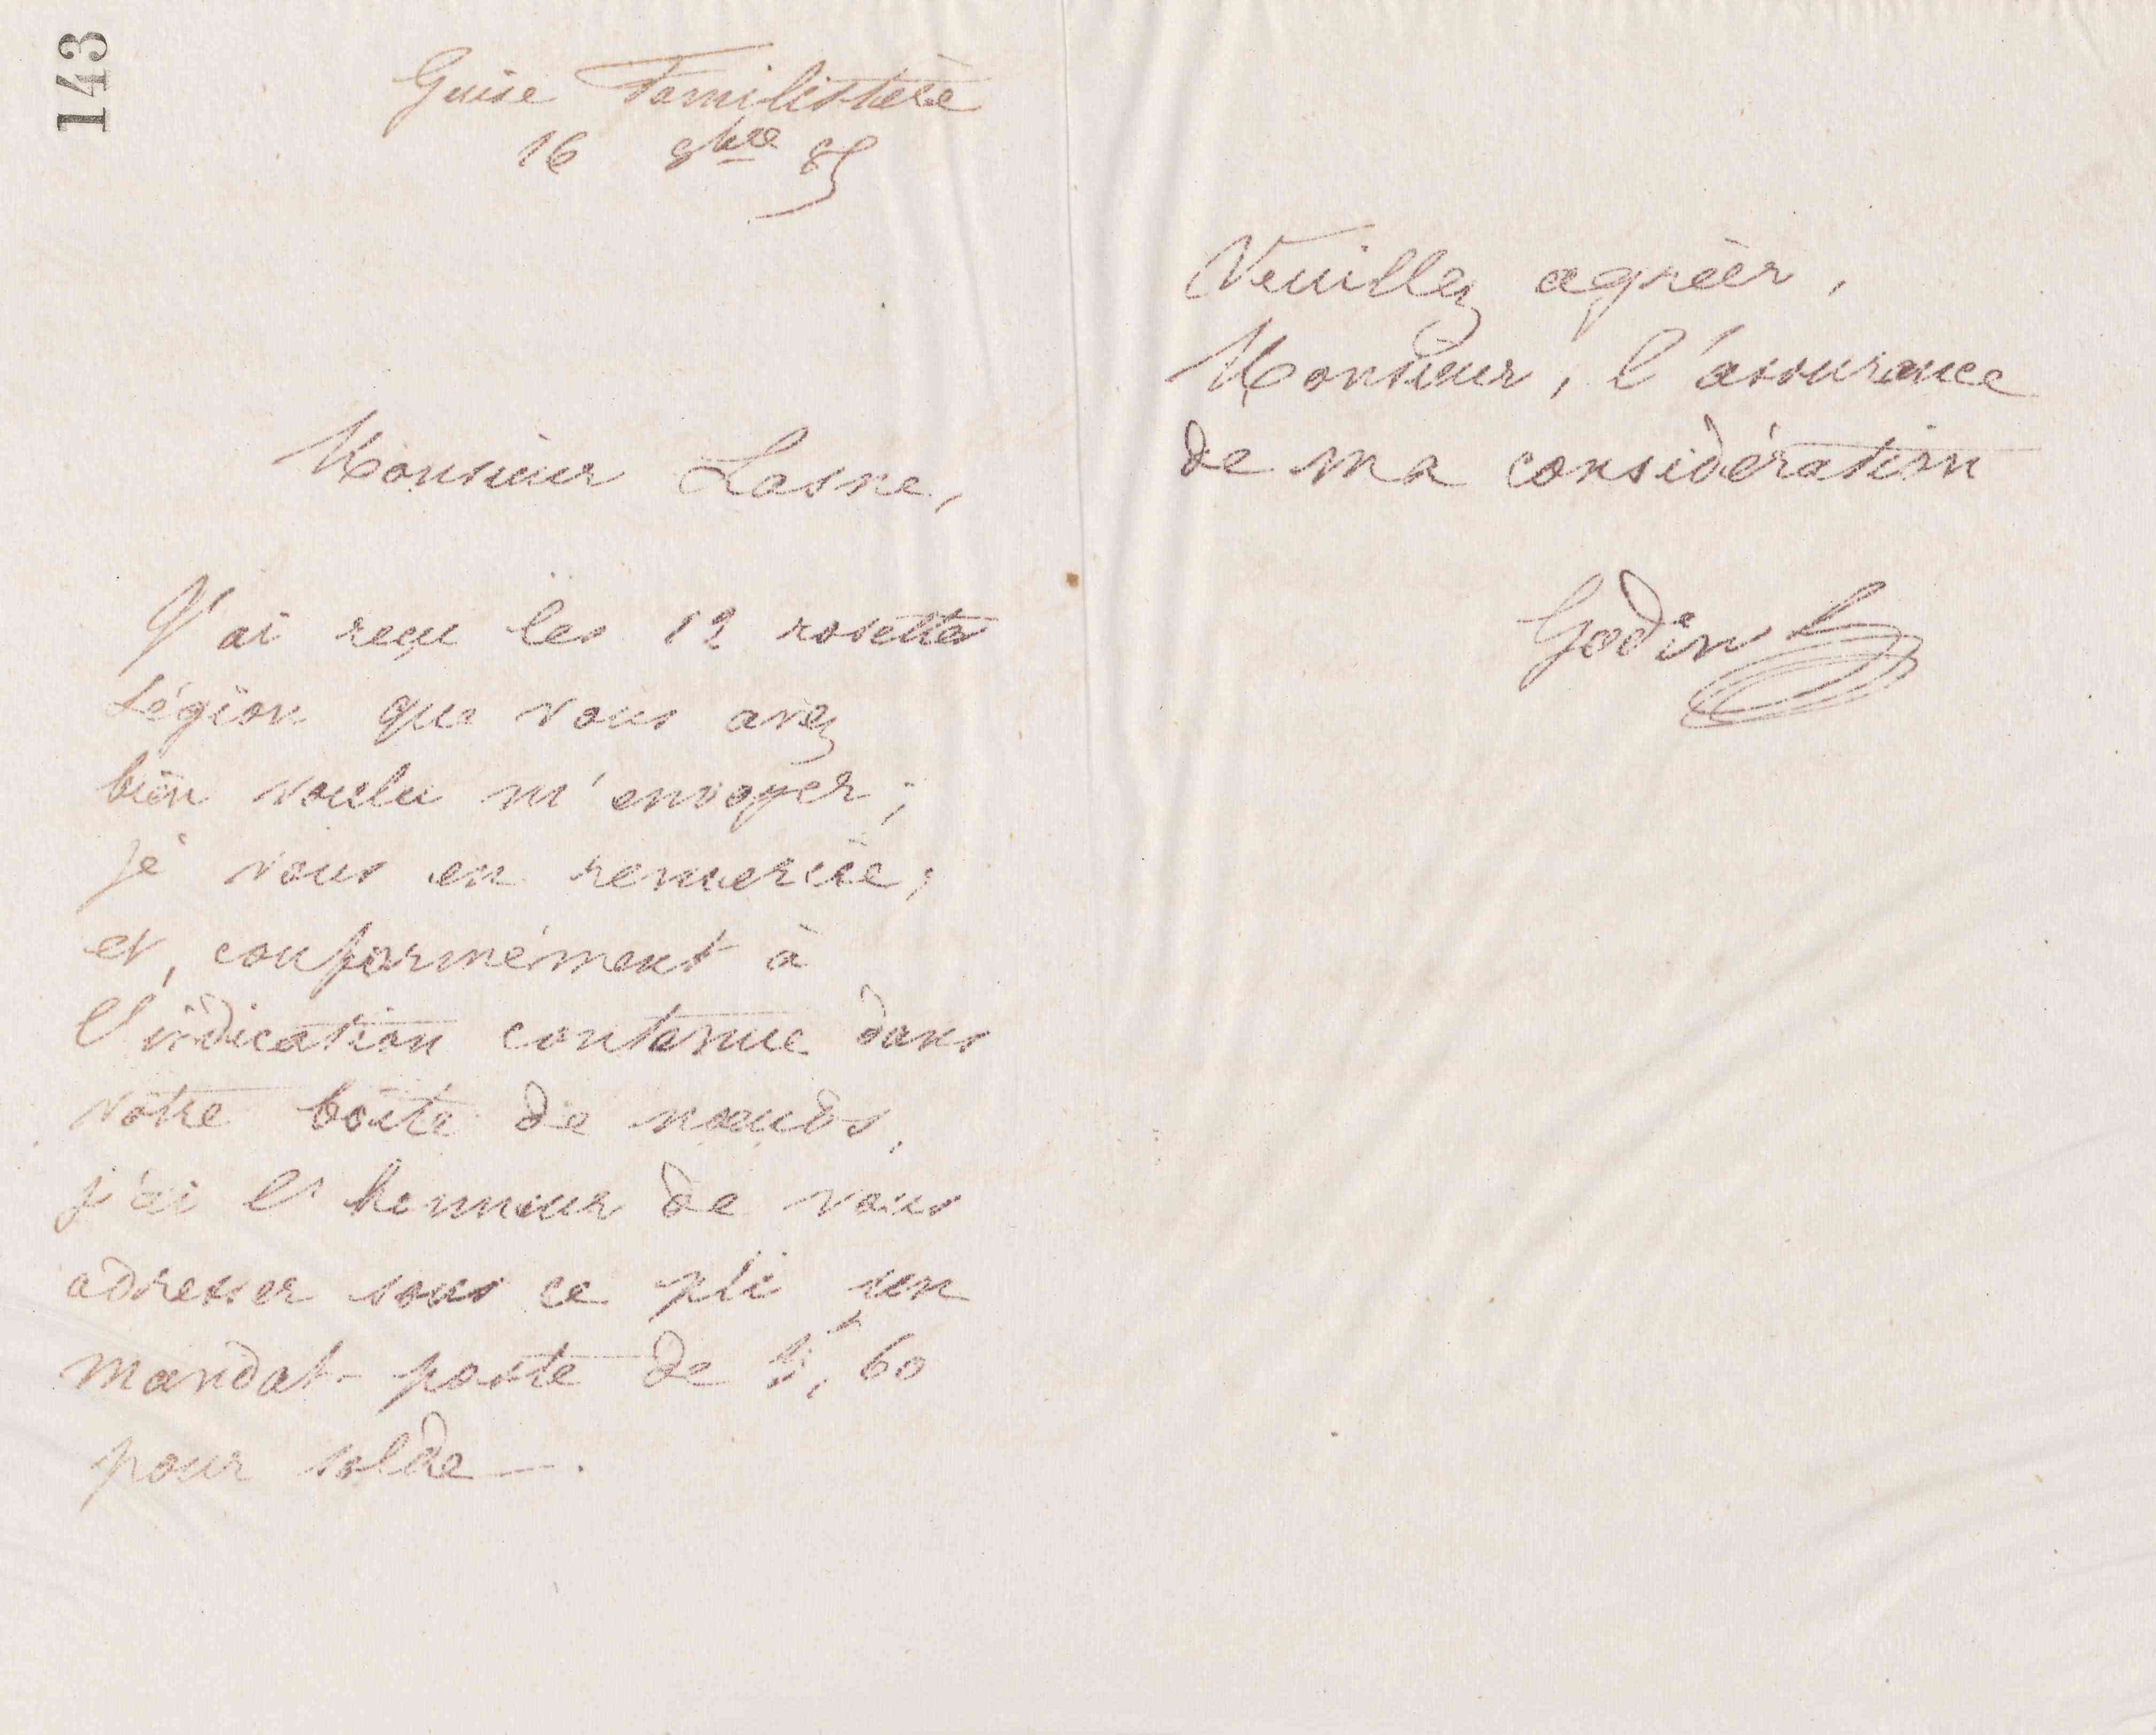 143
Guise Familistère
16 8bre 85
Monsieur Lasne,
J'ai reçu les 12 rosettes
Légion que vous avez
bien voulu m'envoyer;
je vous en remercie;
et, conformément à
l'indication contenue dans
votre boîte de nœuds,
j'ai l'honneur de vous
adresser sous ce pli un
mandat-poste de 60
pour solde.
Veuillez agréer,
Monsieur, l'assurance
de ma considération
Godin